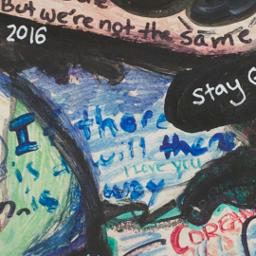 But we're not the same
2016
stay
I there
is a will there
is way
I love you